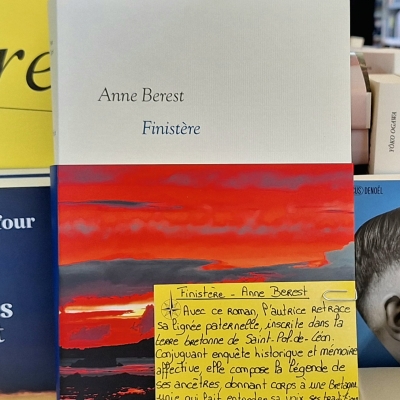 re
Anne Berest
Finistère
YÔKO OGAWA
DENOËL
Tour
s
t
Finistère - Anne Berest
Avec ce roman, l'autrice retrace
sa lignée paternelle, inscrite dans la
terre bretonne de Saint-Pol-de-Léon.
Conjuguant enquête historique et mémoire
affective, elle compose la légende de
ses ancêtres, donnant corps à une Bretagne
unie qui fait entendre sa voix, ses